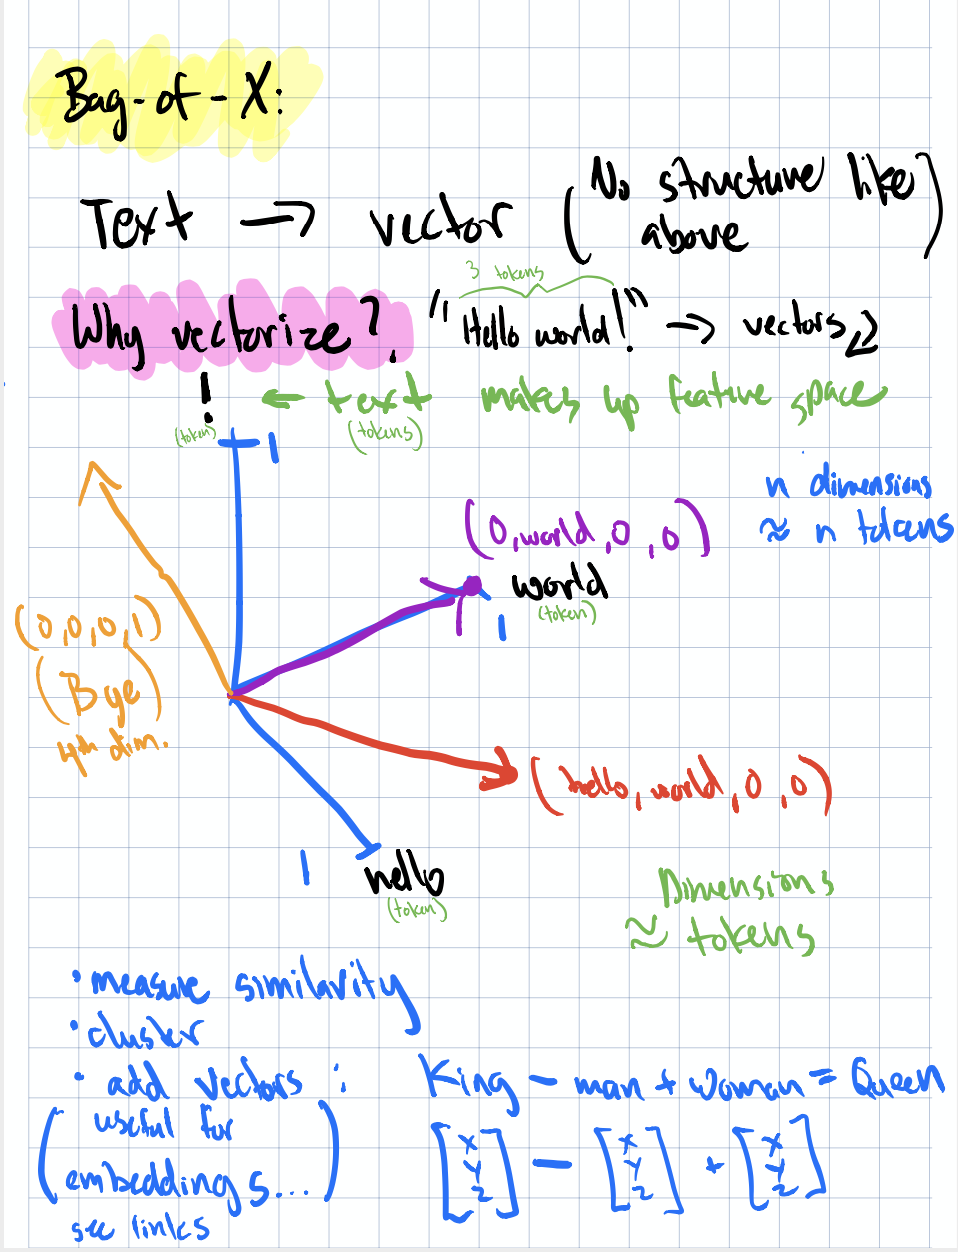 Bag-of-X:
Text → vector (No structure like above)
3 tokens
Why vectorize? "Hello world!" → vectors
! ← text makes up feature space
(token) (tokens)
1
n dimensions
≈ n tokens
(0,world,0,0)
world
(token)
1
(0,0,0,1)
(Bye)
4th dim.
(hello, world, 0, 0)
1
hello
(token)
Dimensions
≈ tokens
• measure similarity
• cluster
• add vectors : King - man + woman = Queen
(useful for
embeddings...)
see links
[x y z] - [x y z] + [x y z]